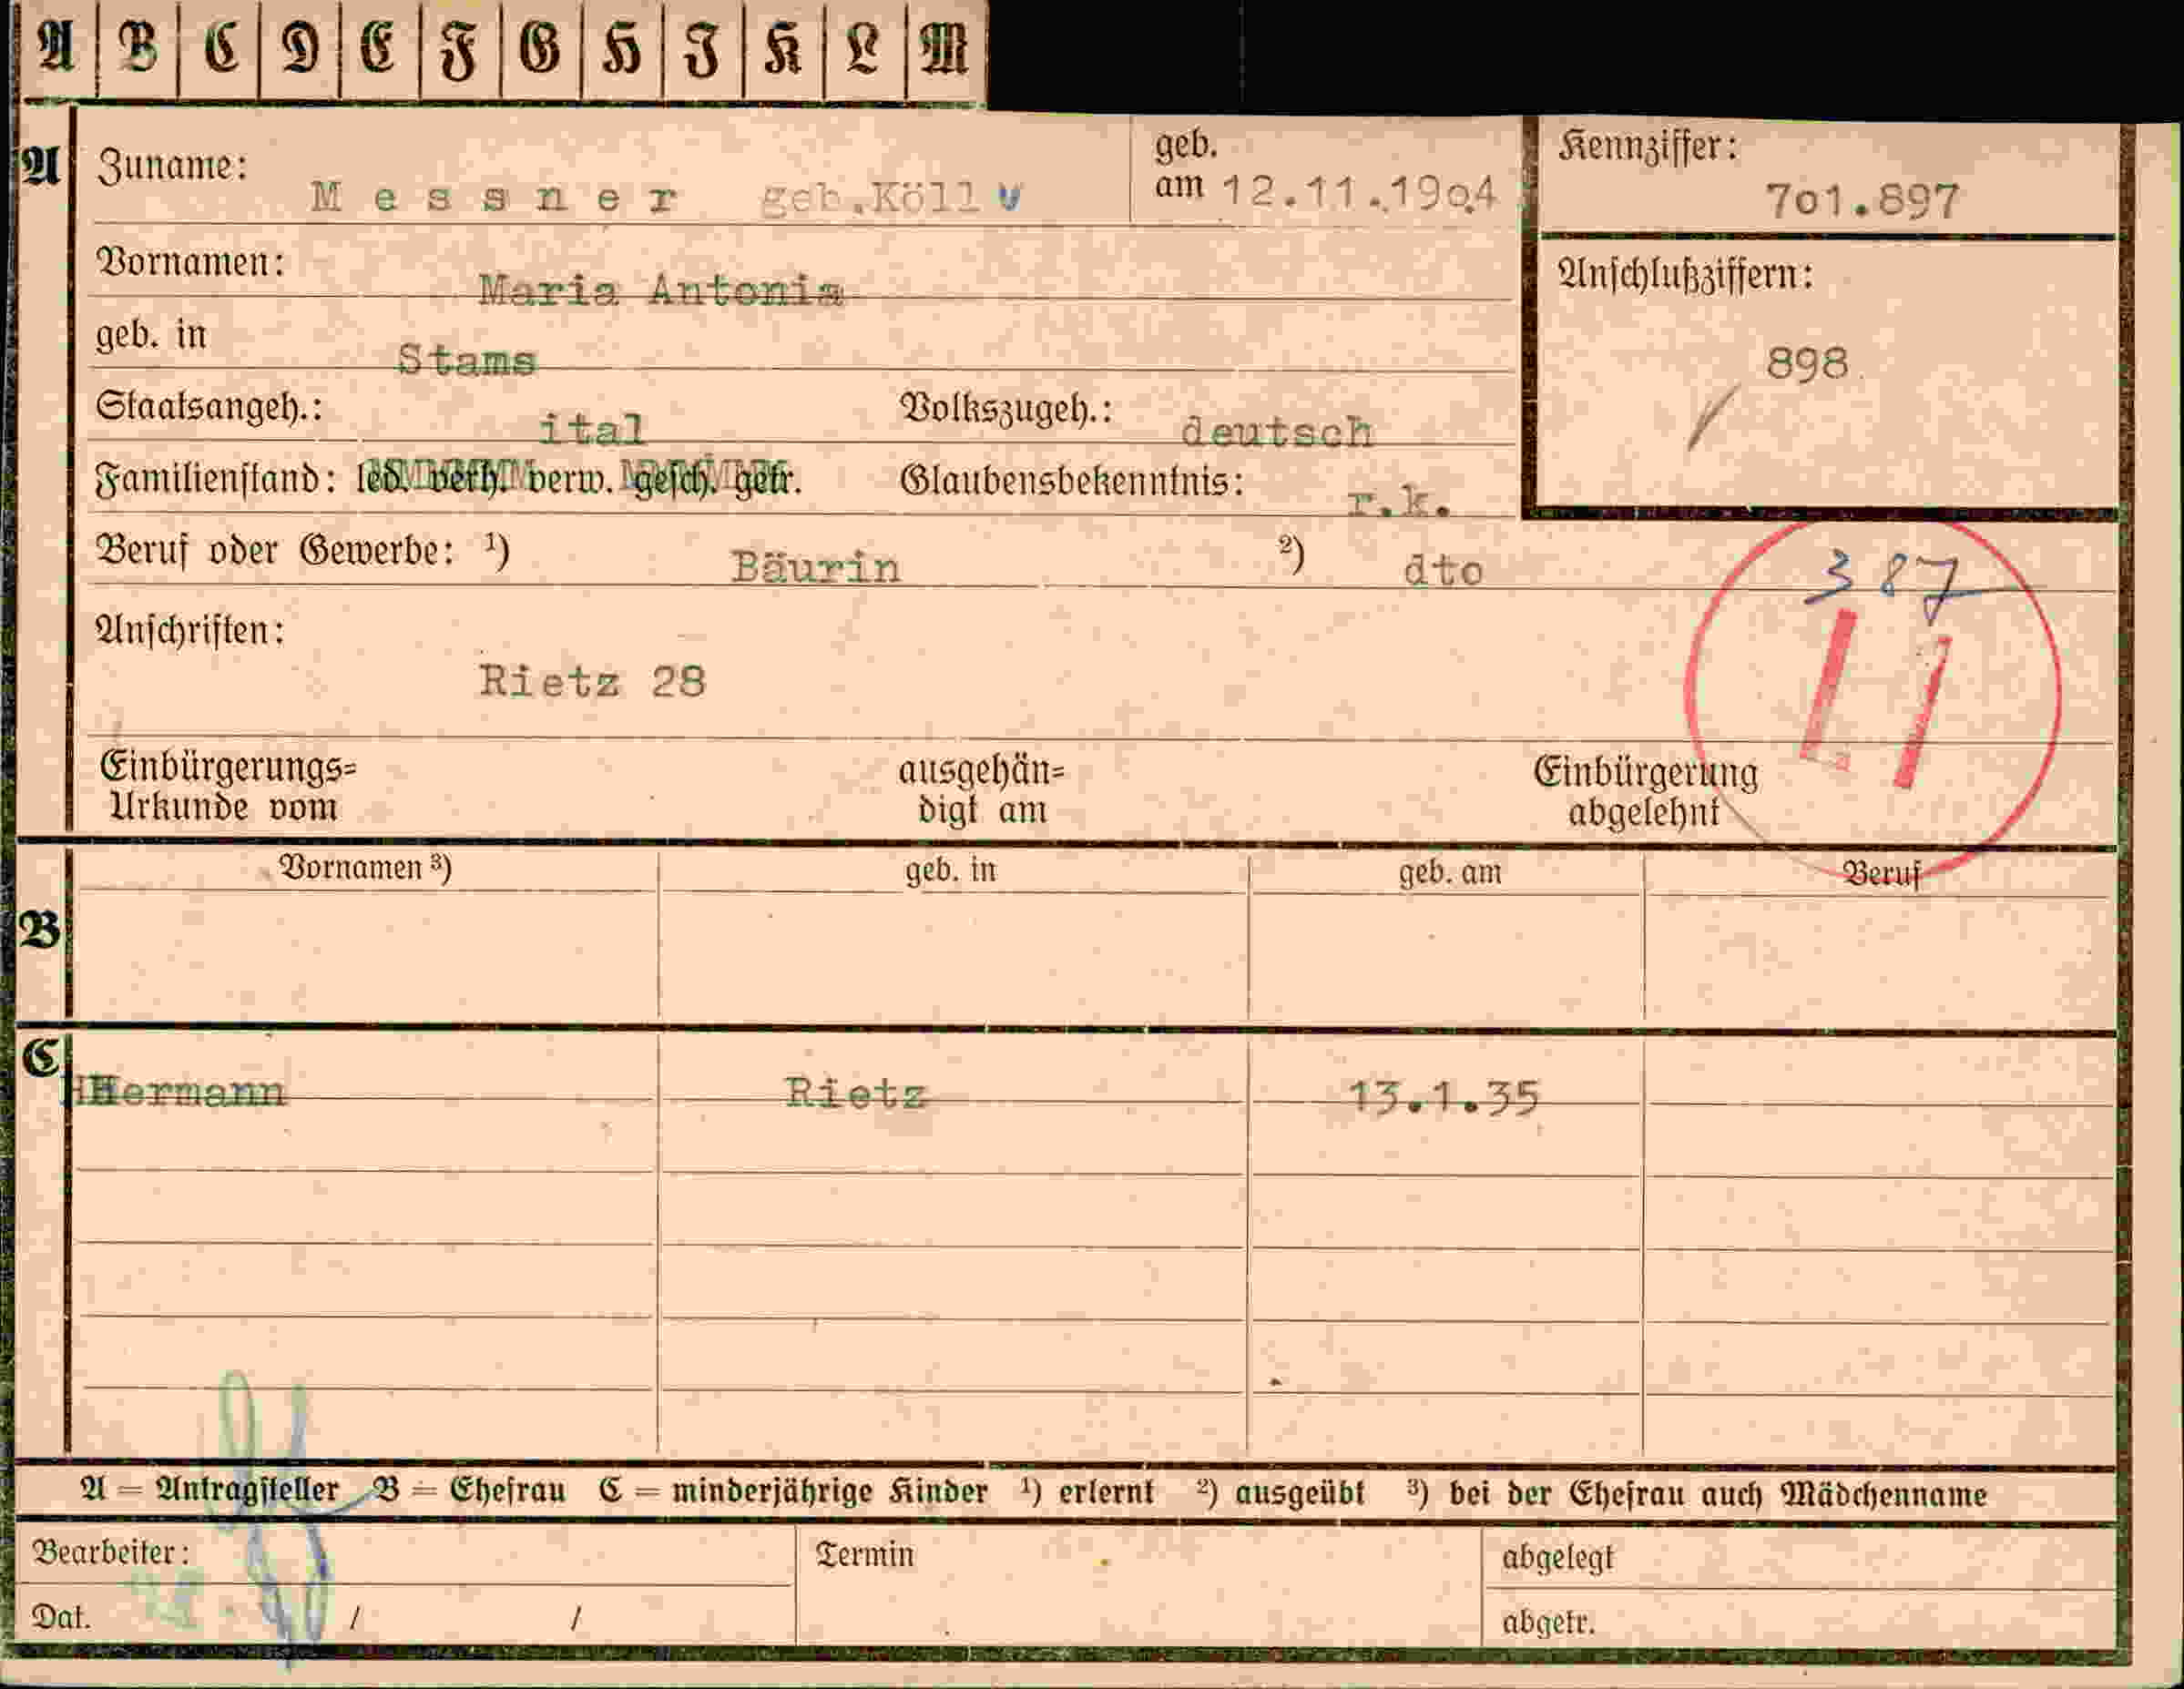 A B C D E F G H J K L M
A Zuname: Messner geb.Köll geb. am 12.11.1904 Kennziffer: 701.897
Vornamen: Maria Antonia Anschlußziffern:
geb. in Stams 898
Staatsangeh.: ital Volkszugeh.: deutsch
Familienstand: led. verh. verw. gesch. getr. Glaubensbekenntnis: r.k.
Beruf oder Gewerbe: ¹) Bäurin ²) dto 387
Anschriften: Rietz 28
Einbürgerungs= Urkunde vom ausgehän= digt am Einbürgerung abgelehnt
Vornamen ³) geb. in geb. am Beruf
B
C Hermann Rietz 13.1.35
A = Antragsteller B = Ehefrau C = minderjährige Kinder ¹) erlernt ²) ausgeübt ³) bei der Ehefrau auch Mädchenname
Bearbeiter: Termin abgelegt
Dat. / / abgetr.